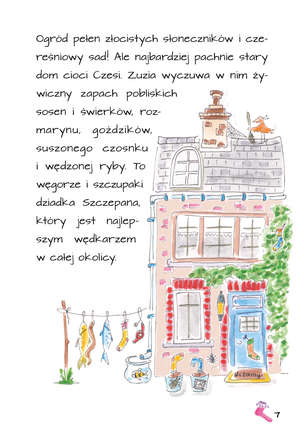 Ogród pełen złocistych słoneczników i cze-
reśniowy sad! Ale najbardziej pachnie stary
dom cioci Czesi. Zuzia wyczuwa w nim ży-
wiczny zapach pobliskich
sosen i świerków, roz-
marynu, goździków,
suszonego czosnku
i wędzonej ryby. To
węgorze i szczupaki
dziadka Szczepana,
który jest najlep-
szym wędkarzem
w całej okolicy.
Witamy
7